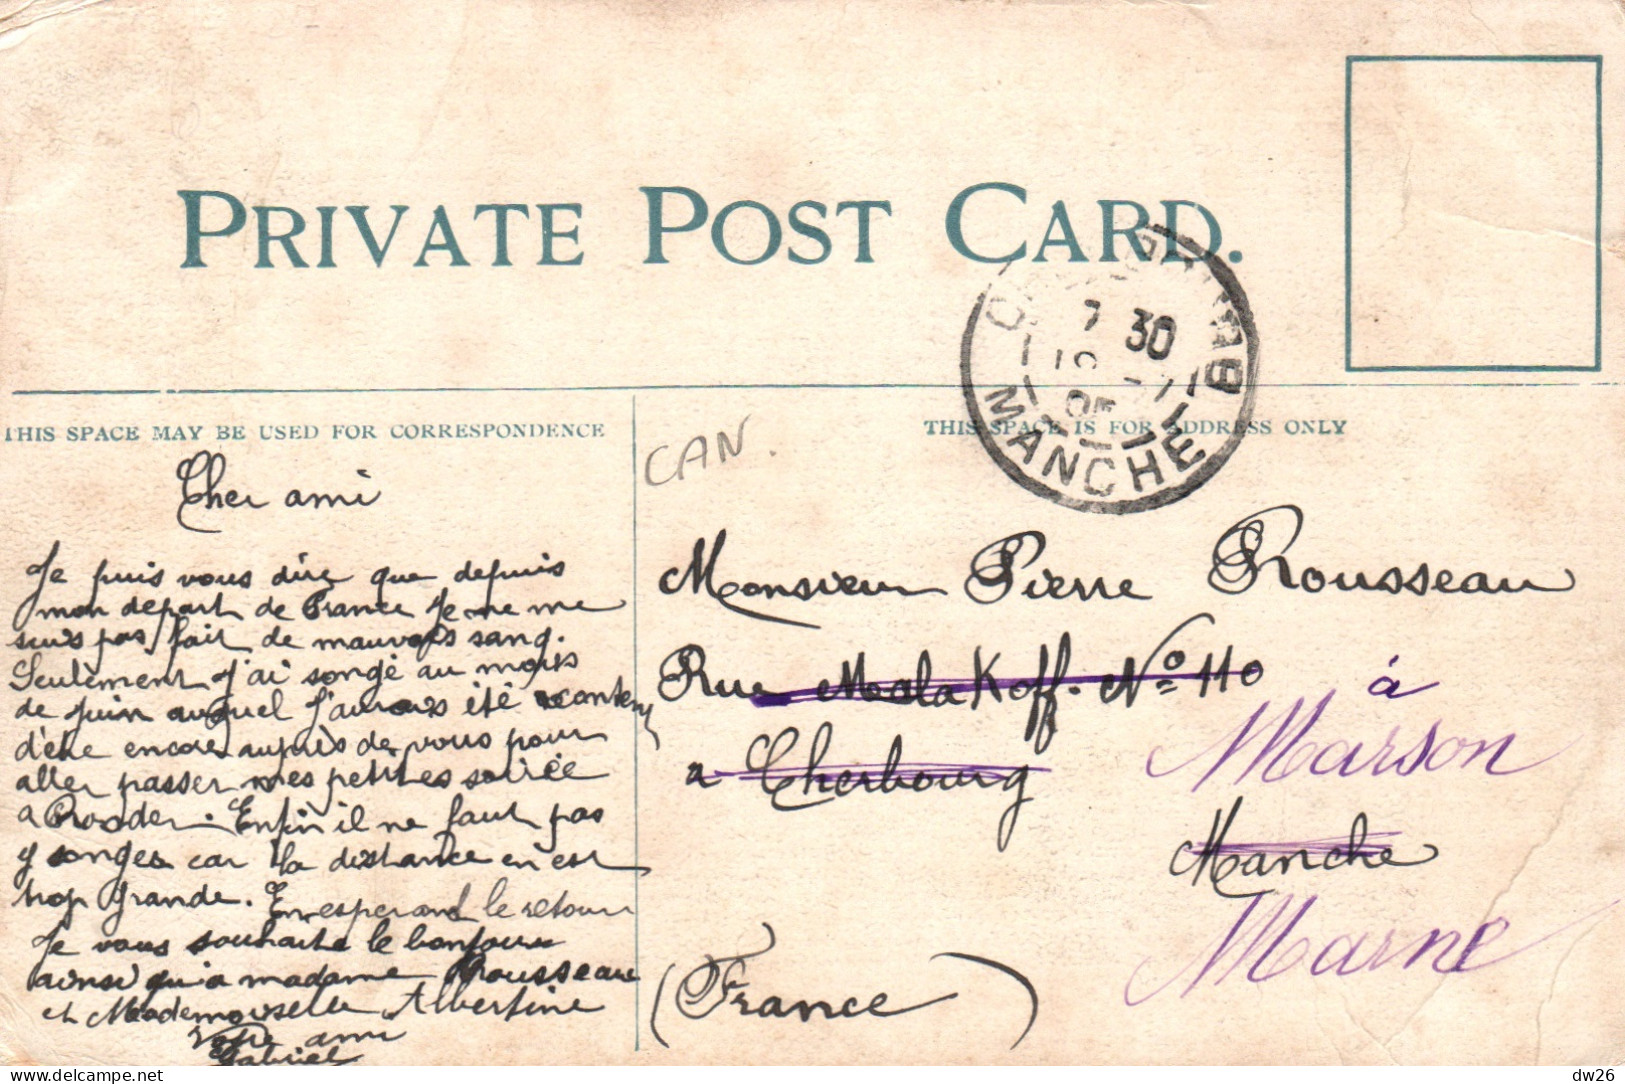 PRIVATE POST CARD.
THIS SPACE MAY BE USED FOR CORRESPONDENCE
THIS SPACE IS FOR ADDRESS ONLY
7 30
MANCHE
CAN.
Cher ami
Je puis vous dire que depuis
mon depart de France Je ne me
suis pas fait de mauvais sang.
Seulement j'ai songé au mois
de Juin auquel J'aurais été content
d'être encore auprès de vous pour
aller passer mes petites soirée
a . Enfin il ne faut pas
y songer car la distance en est
trop grande. En esperand le retour
Je vous souhaite le bonjour
ainsi qu'a madame Rousseau
et Mademoiselle Albertine
Votre ami
Gabriel
Monsieur Pierre Rousseau
Rue Malakoff. No 110 à
a Cherbourg Marson
Manche
Marne
(France)
dw26